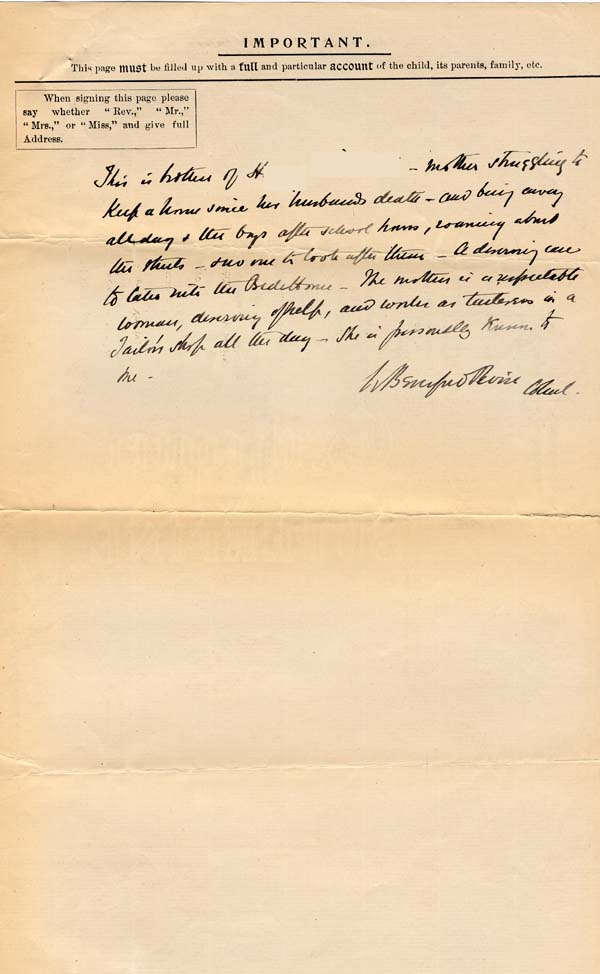 IMPORTANT.
This page must be filled up with a full and particular account of the child, its parents, family, etc.
When signing this page please
say whether "Rev.," "Mr.,"
"Mrs.," or "Miss," and give full
Address.
This is brother of H. – mother struggling to
keep a home since her husband's death – and being away
all day & the boys after school hours, roaming about
the streets – & no one to look after them – A deserving case
to take into the Bede Home – The mother is a respectable
woman, deserving of help, and works as tailoress in a
Tailor's shop all the day – She is personally known to
me –